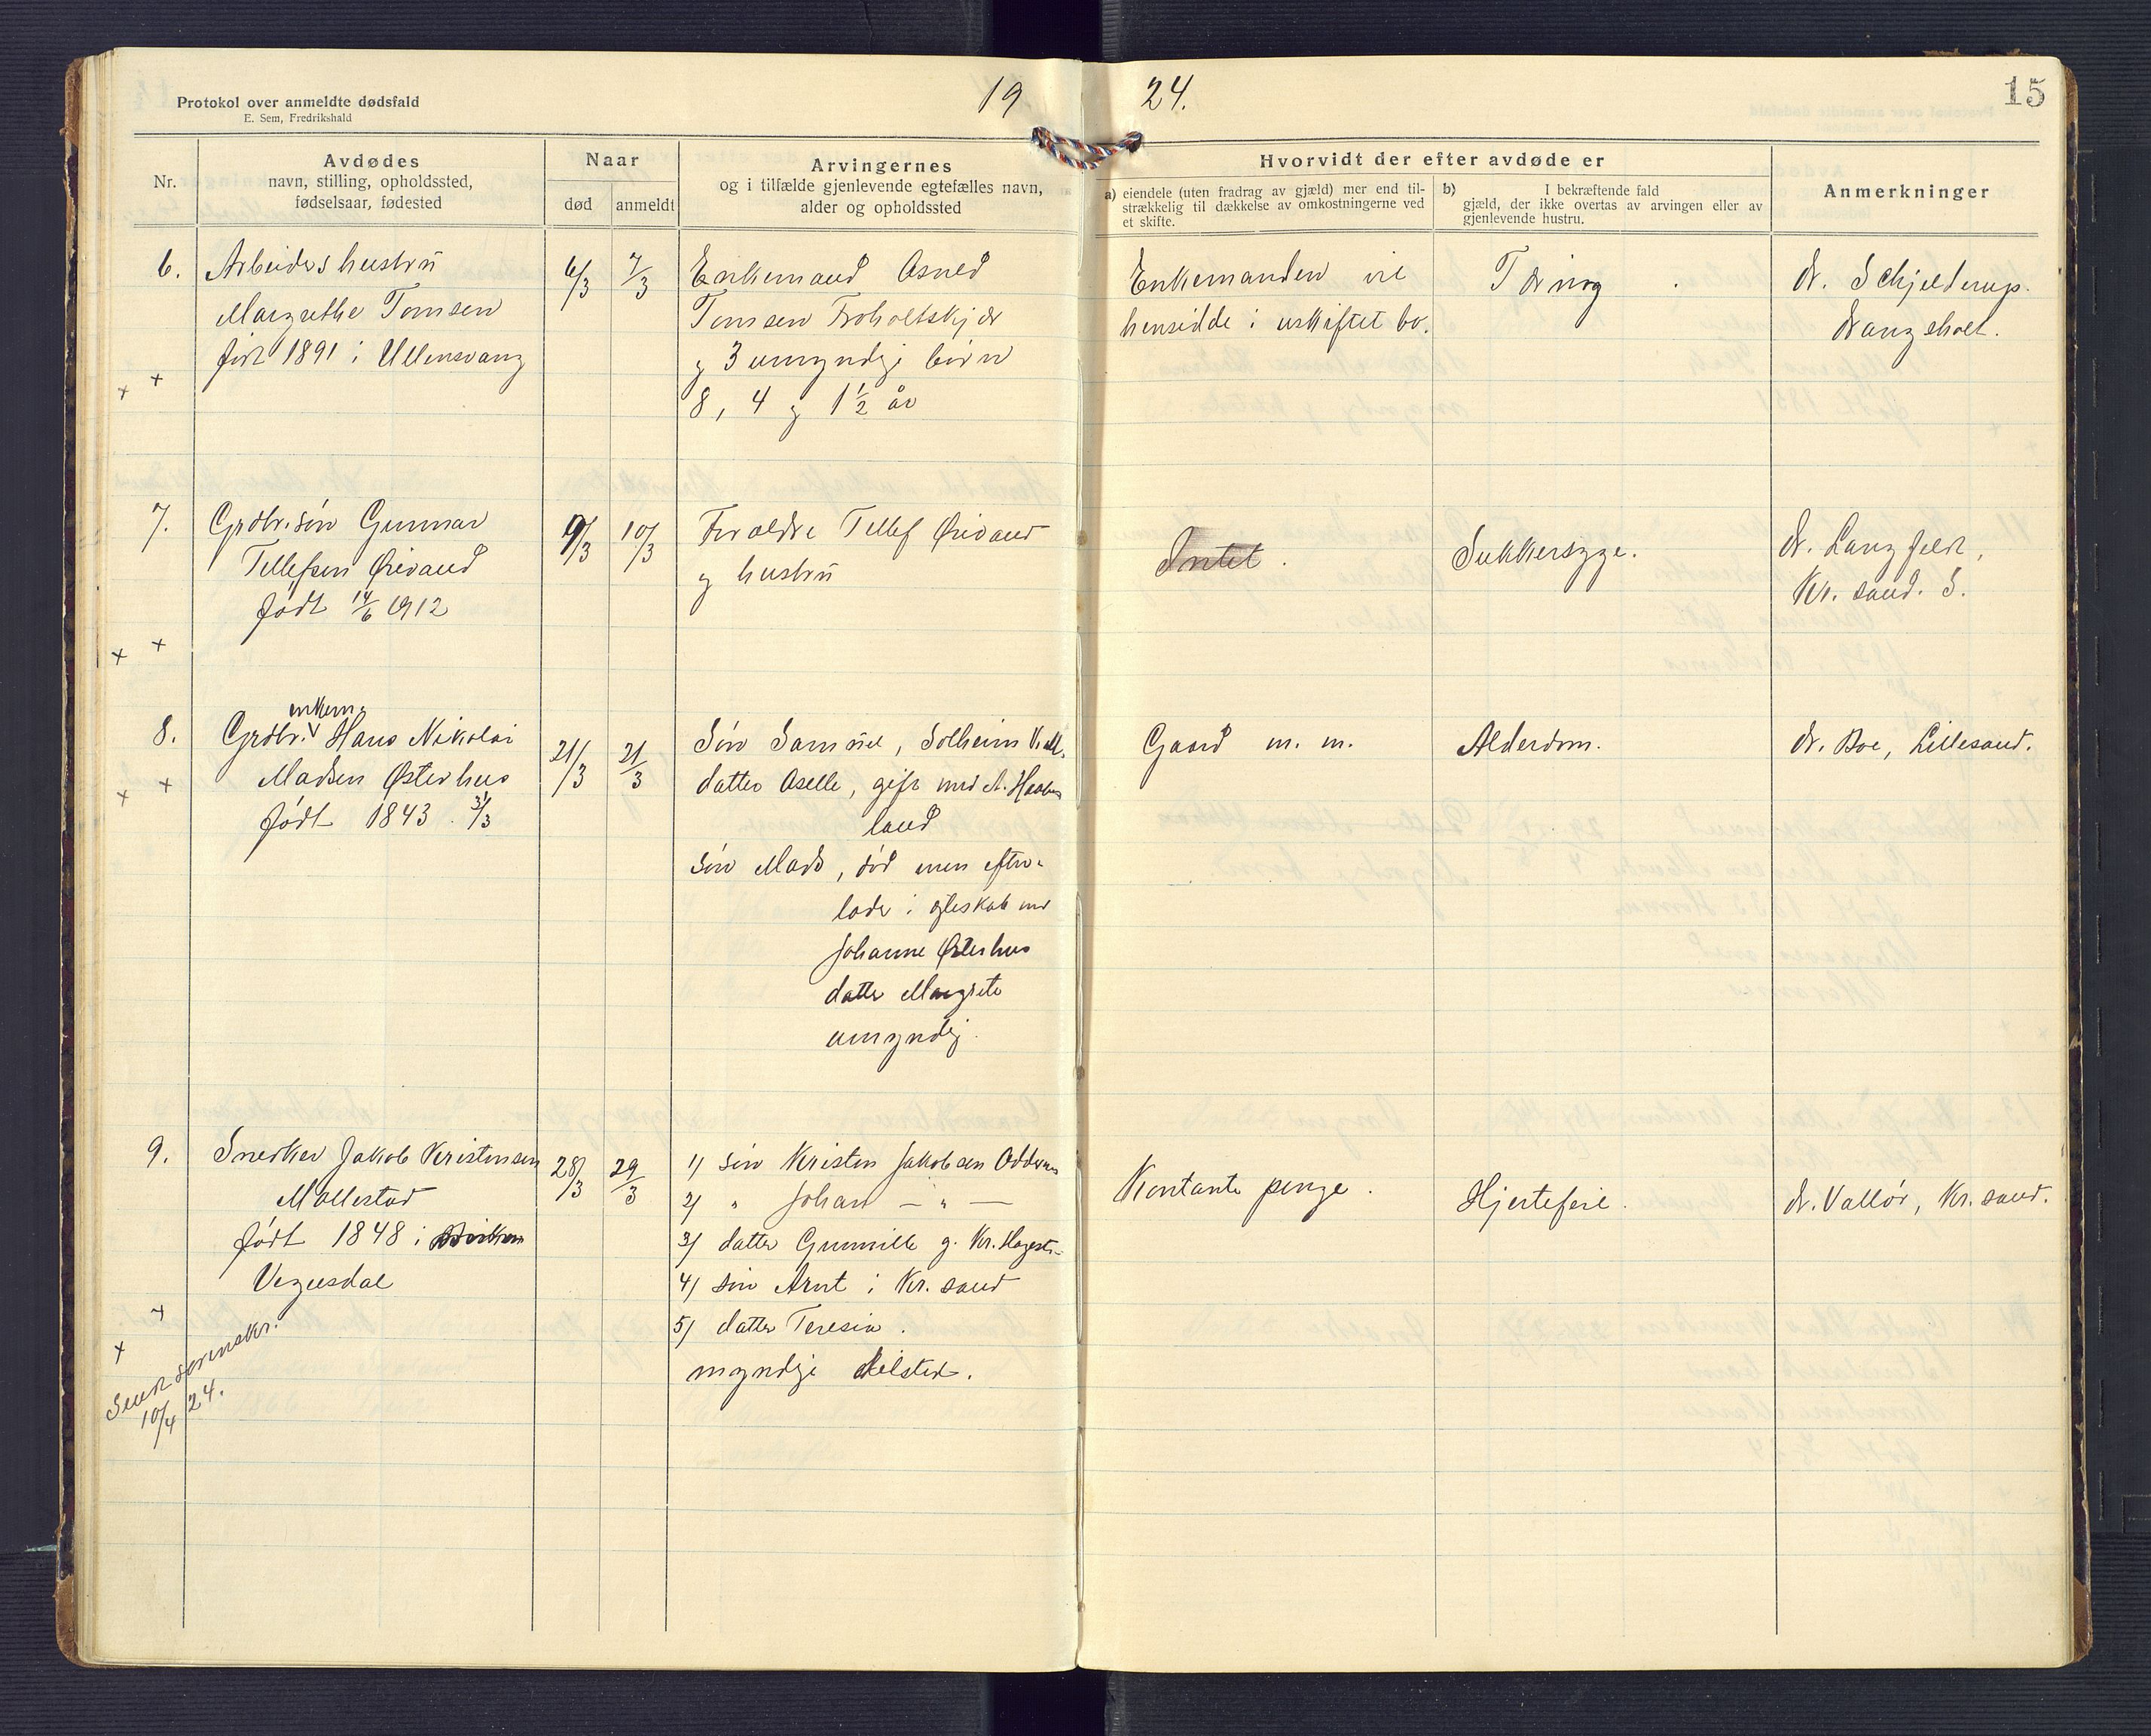 Protokol over anmeldte dødsfald
E. Sem, Fredrikshald
19 24.
15
Nr.
Avdødes
navn, stilling, opholdssted,
fødselsaar, fødested
Naar
død
anmeldt
Arvingernes
og i tilfælde gjenlevende egtefælles navn,
alder og opholdssted
Hvorvidt der efter avdøde er
a) eiendele (uten fradrag av gjæld) mer end til-
strækkelig til dækkelse av omkostningerne ved
et skifte.
b) I bekræftende fald
gjæld, der ikke overtas av arvingen eller av
gjenlevende hustru.
Anmerkninger
6.
Arbeiders hustru
Margrethe Tomsen
født 1891 i Ullensvang
6/3
7/3
Enkemand Asned
Tomsen
og 3 umyndige børn
8, 4 og 1½ år
Enkemanden vil
hensidde i uskiftet bo.
Tæring
dr. Schjelderup.
Drangsholt.
7.
Grdbr. søn Gunnar
Tellefsen Øivand
født 14/6 1912
9/3
10/3
Forældre Tellef Øivand
og hustru
Intet.
Sukkersyge.
dr. Langfeldt,
Kr.sand. S.
8.
enkem.
Grdbr. Hans Nikolai
Madsen Østerhus
født 1843. 31/3
21/3
21/3
Søn Samuel, Solheim
datter Aselle, gift med A.
land
søn Mads, død men efter-
lader i egteskab med
Johanne Østerhus
datter Margrete
umyndig.
Gaard m. m.
Alderdom.
dr. Boe, Lillesand.
9.
Snedker Jakob Kristensen
Mollestad
født 1848 i
Vegusdal
28/3
29/3
1) søn Kristen Jakobsen
2) " Johan — " —
3) datter Gunnille g. Kr.
4) søn Arnt i Kr.sand
5) datter Teresia.
myndige tilsted.
Kontante penge.
Hjertefeil.
dr. Valløe, Kr.sand.
Sendt sorenskr.
10/4 24.